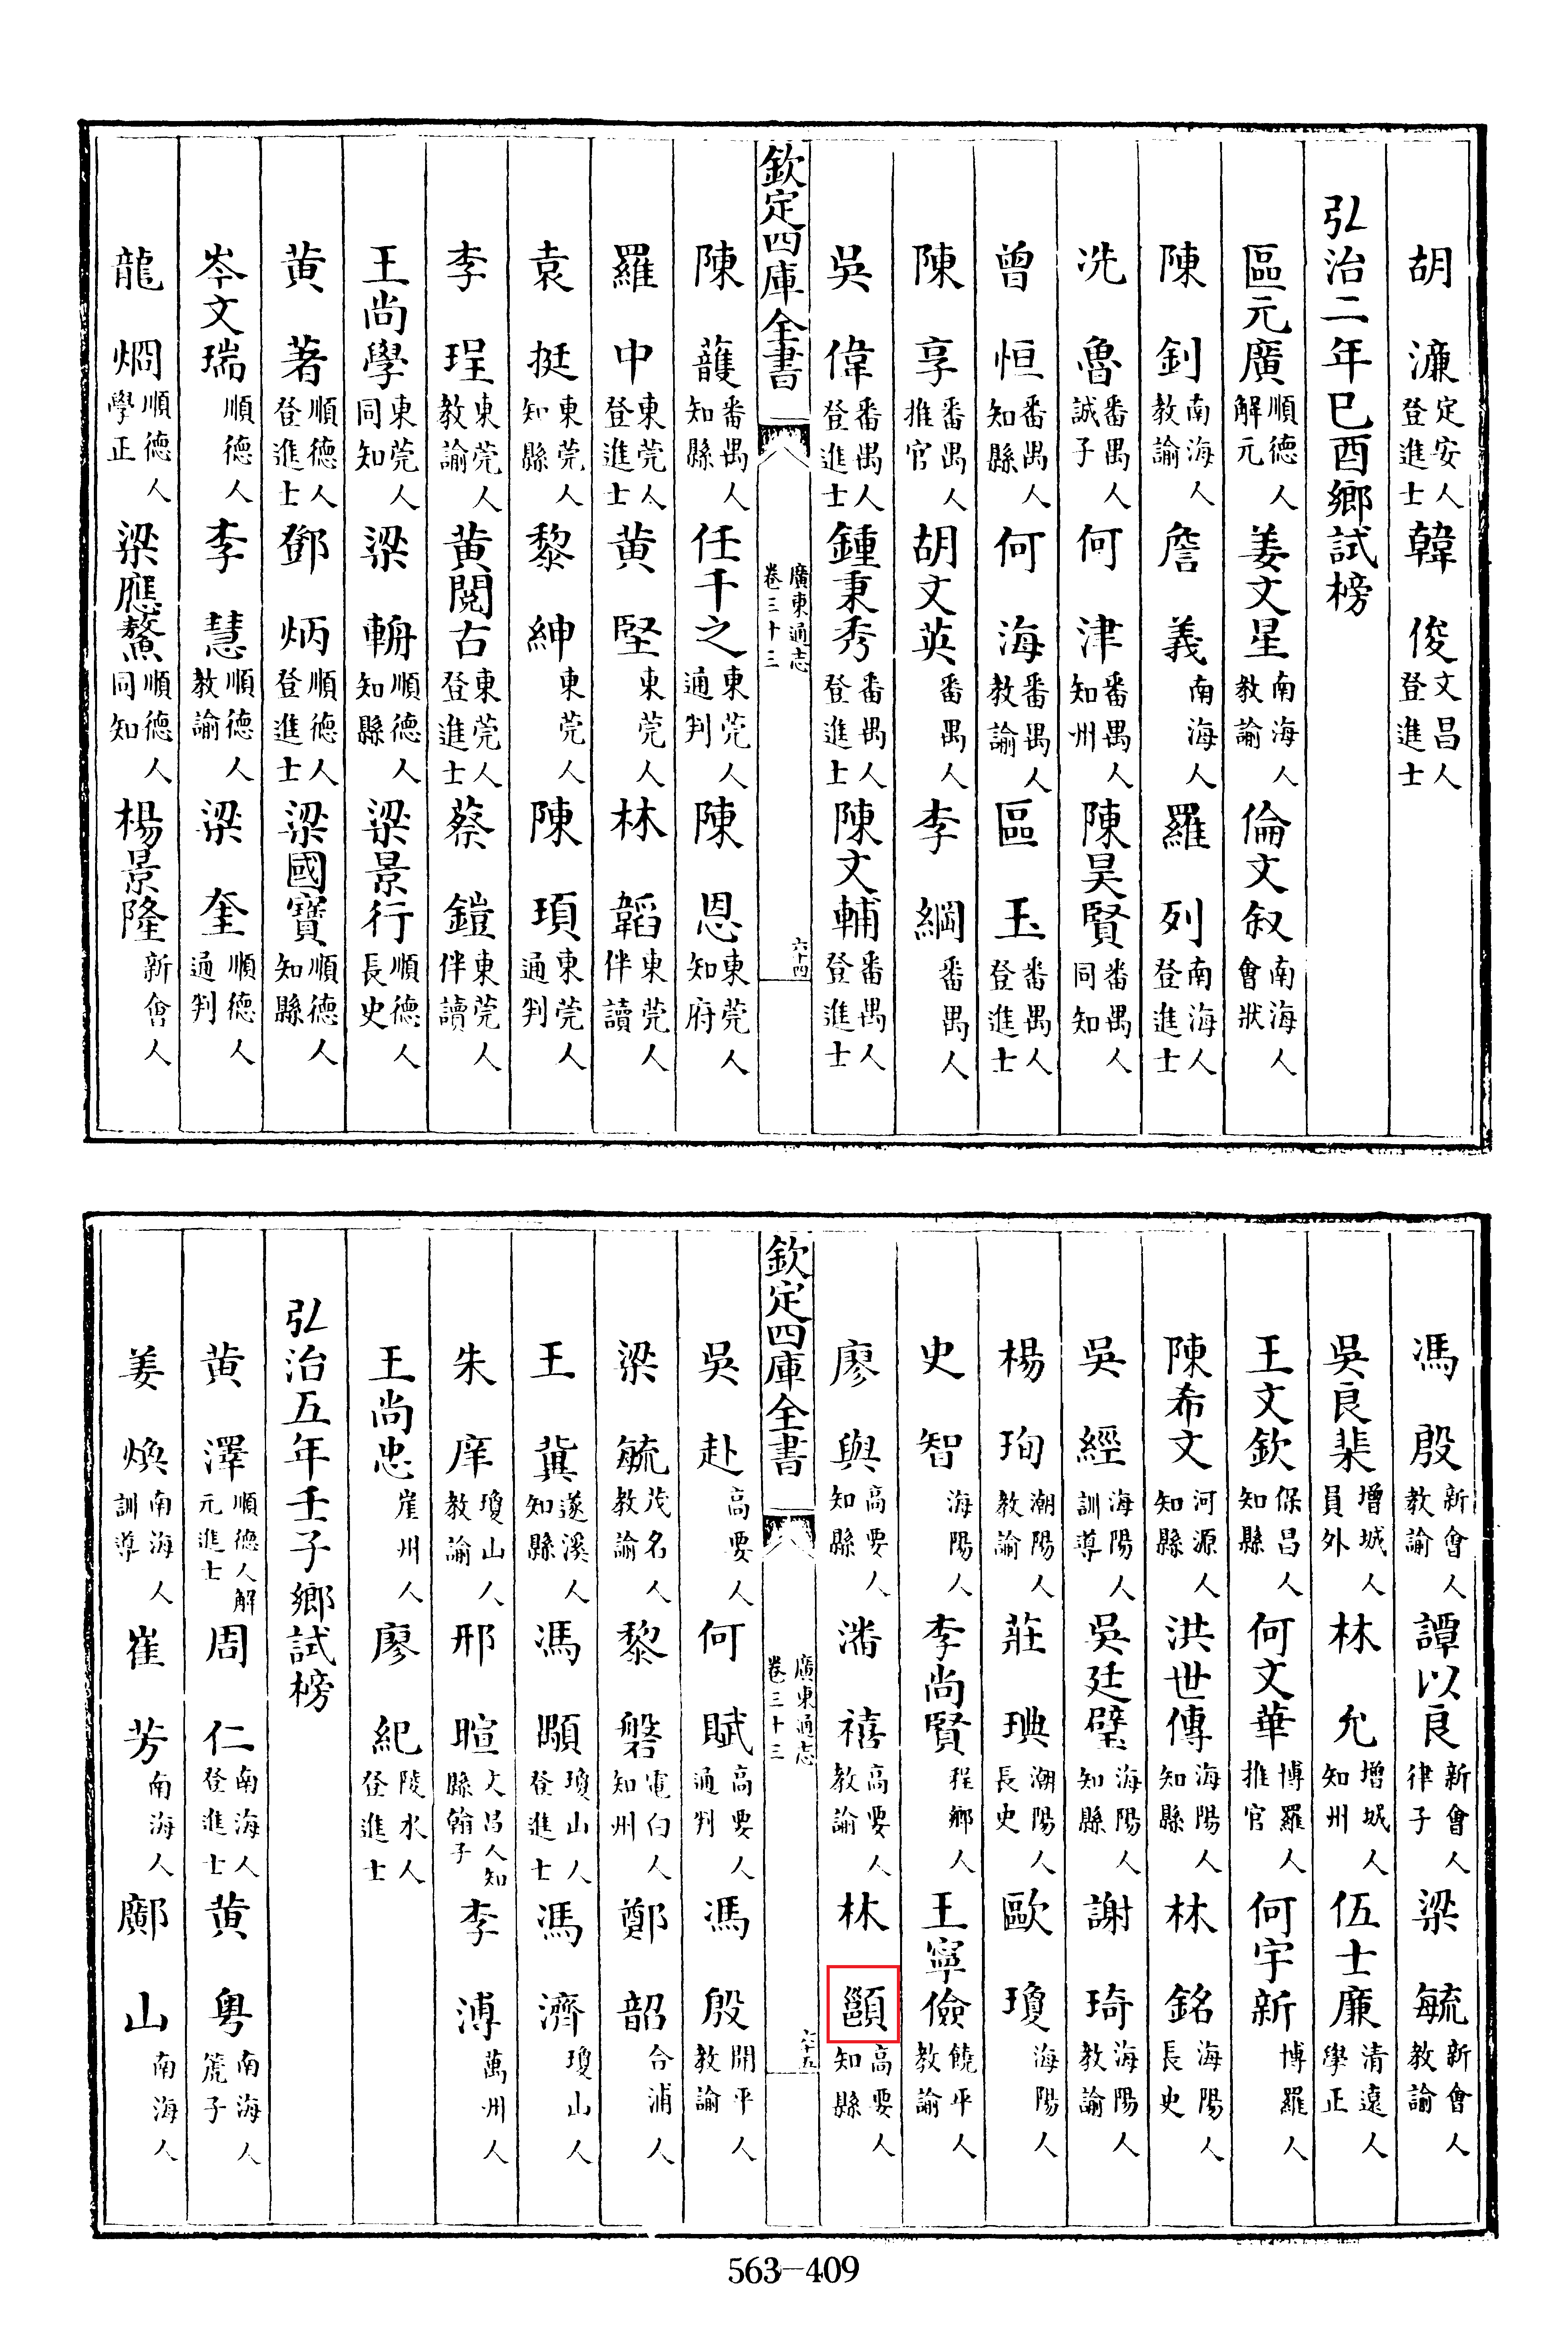 胡濂定安人登進士 韓俊文昌人登進士
弘治二年巳酉鄉試榜
區元廣順德人解元 姜文星南海人教諭 倫文叙南海人會狀
陳釗南海人教諭 詹義南海人 羅列南海人登進士
冼魯番禺人誠子 何津番禺人知州 陳昊賢番禺人同知
曾恒番禺人知縣 何海番禺人教諭 區玉番禺人登進士
陳享番禺人推官 胡文英番禺人 李綱番禺人
吳偉番禺人登進士 鍾秉秀番禺人登進士 陳文輔番禺人登進士
欽定四庫全書 廣東通志卷三十三 六十四
陳番禺人知縣 任千之東莞人通判 陳恩東莞人知府
羅中東莞人登進士 黄堅東莞人 林韜東莞人伴讀
袁挺東莞人知縣 黎紳東莞人 陳項東莞人通判
李珵東莞人教諭 黄閲古東莞人登進士 蔡鎧東莞人伴讀
王尚學東莞人同知 梁輈順德人知縣 梁景行順德人長史
黄著順德人登進士 鄧炳順德人登進士 梁國寶順德人知縣
岑文瑞順德人 李慧順德人教諭 梁奎順德人通判
龍烱順德人學正 梁應鰲順德人同知 楊景隆新會人
馮殷新會人教諭 譚以良新會人律子 梁毓新會人教諭
吳良棐增城人員外 林允增城人知州 伍士廉清遠人學正
王文欽保昌人知縣 何文華博羅人推官 何宇新博羅人
陳希文河源人知縣 洪世傳海陽人知縣 林銘海陽人長史
吳經海陽人訓導 吳廷璧海陽人知縣 謝琦海陽人教諭
楊珣潮陽人教諭 莊琠潮陽人長史 歐瓊海陽人
史智海陽人 李尚賢程鄉人 王寧儉饒平人教諭
廖與高要人知縣 潘禧高要人教諭 林高要人知縣
欽定四庫全書 廣東通志卷三十三 六十五
吳赴高要人 何賦高要人通判 馮殷開平人教諭
梁毓茂名人教諭 黎磐電白人知州 鄭韶合浦人
王冀遂溪人知縣 馮顒瓊山人登進士 馮濟瓊山人
朱庠瓊山人教諭 邢暄文昌人知縣翰子 李溥萬州人
王尚忠崖州人 廖紀陵水人登進士
弘治五年壬子鄉試榜
黄澤順德人解元進士 周仁南海人登進士 黄粤南海人箎子
姜煥南海人訓導 崔芳南海人 鄺山南海人
563-409